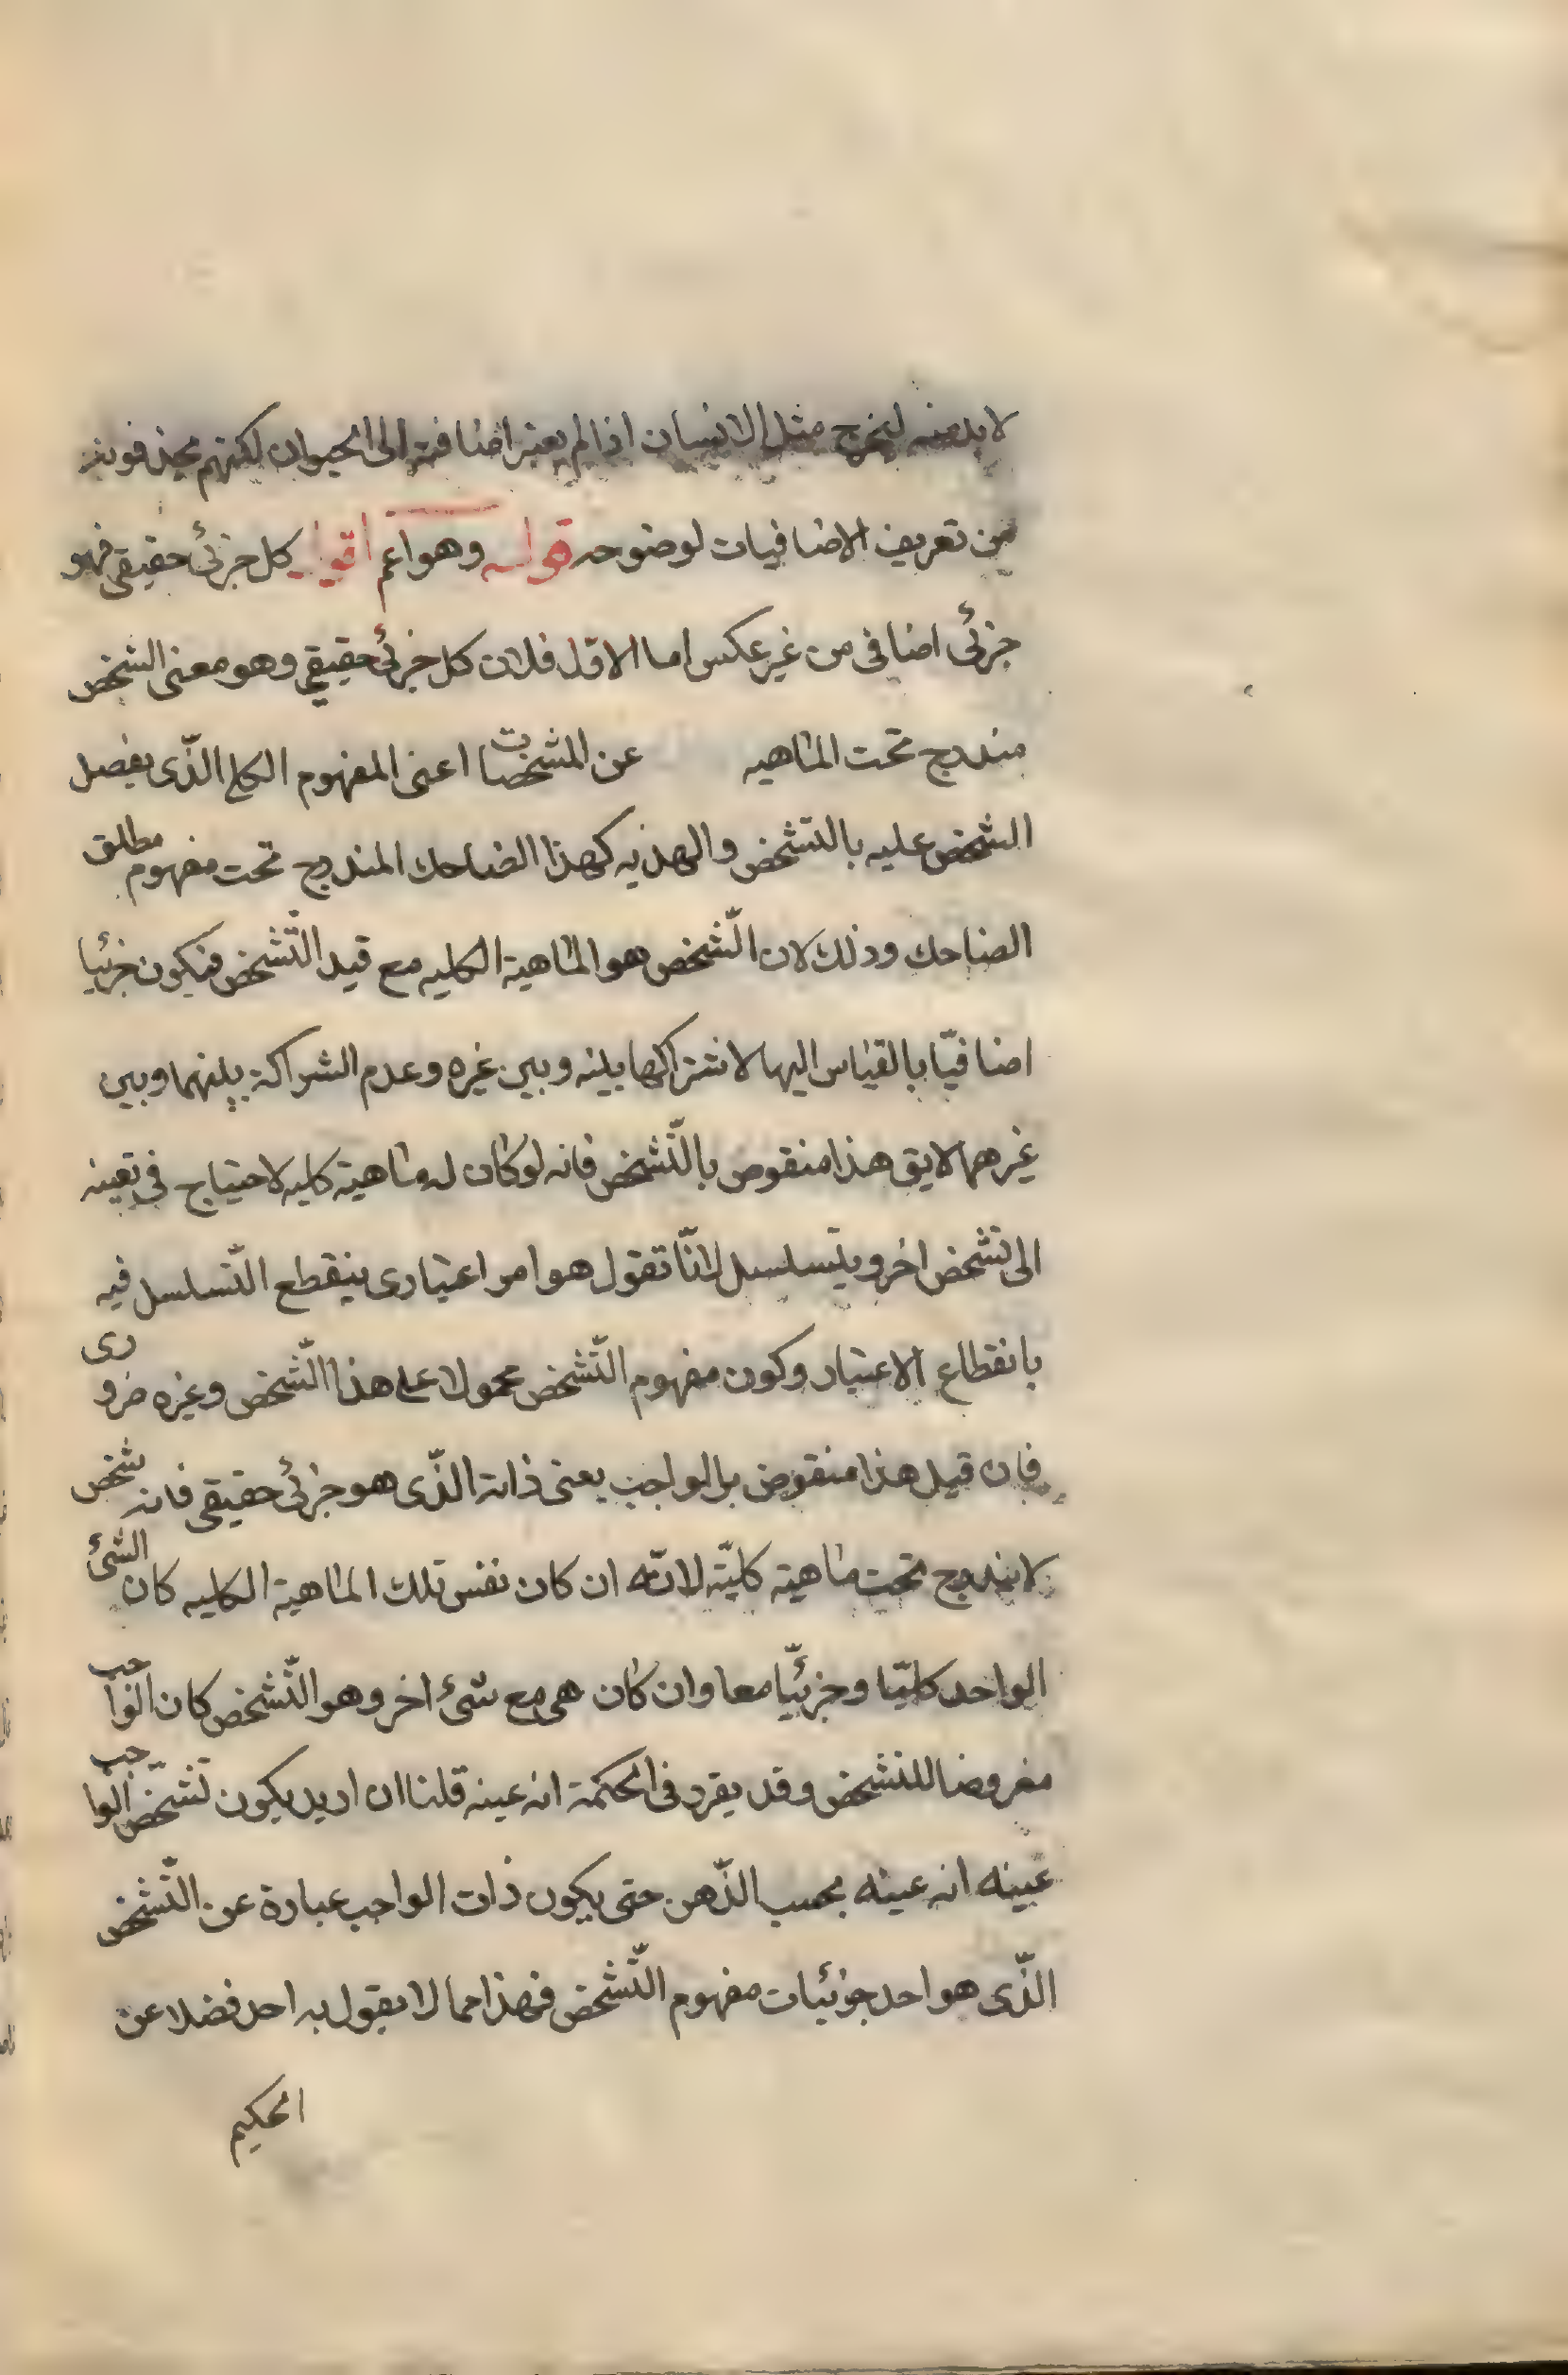 لابد منه ليخرج مثل الانسان اذا لم يعتبر اضافته الى الحيوان لكنهم يحذفونه
من تعريف الاضافيات لوضوحه قوله وهو اعم اقول كل جزئى حقيقى فهو
جزئى اضافى من غير عكس اما الاول فلان كل جزئى حقيقى وهو معنى الشخص
مندرج تحت الماهيه عن المشخصات اعنى المفهوم الكلى الذّى يفصل
الشخص عليه بالتشخص والهذيه كهذا الضاحك المندرج تحت مفهوم مطلق
الضاحك وذلك لان الشّخص هو الماهية الكليه مع قيد التّشخص فيكون جزئيا
اضافيّا بالقياس اليها لاشتراكها بينه وبين غيره وعدم الشراكة بينهما وبين
غيرهما لايق هذا منقوض بالتّشخص فانه لو كان له ماهية كليه لاحتياج فى تعينه
الى تشخص اخر ويتسلسل لانّا نقول هو امر اعتبارى ينقطع التّسلسل فيه
بانقطاع الاعتبار وكون مفهوم التّشخص محمولا على هذا التّشخص وغيره ضرورى
فان قيل هذا منقوض بالواجب يعنى ذاته الذّى هو جزئى حقيقى فانه شخص
لا يندرج تحت ماهية كليّة لانّه ان كان نفس تلك الماهية الكليه كان الشئ
الواحد كليّا وجزئيّا معا وان كان هى مع شئ اخر وهو التّشخص كان الواجب
معروضا للتشخص وقد يقرر فى الحكمة انه عينه قلنا ان اريد بكون تشخّص الواجب
عينه انه عينه بحسب الذّهن حتى يكون ذات الواجب عبارة عن التّشخص
الذّى هو احد جزئيات مفهوم التّشخص فهذا مما لا يقول به احد فضلا عن
الحكيم